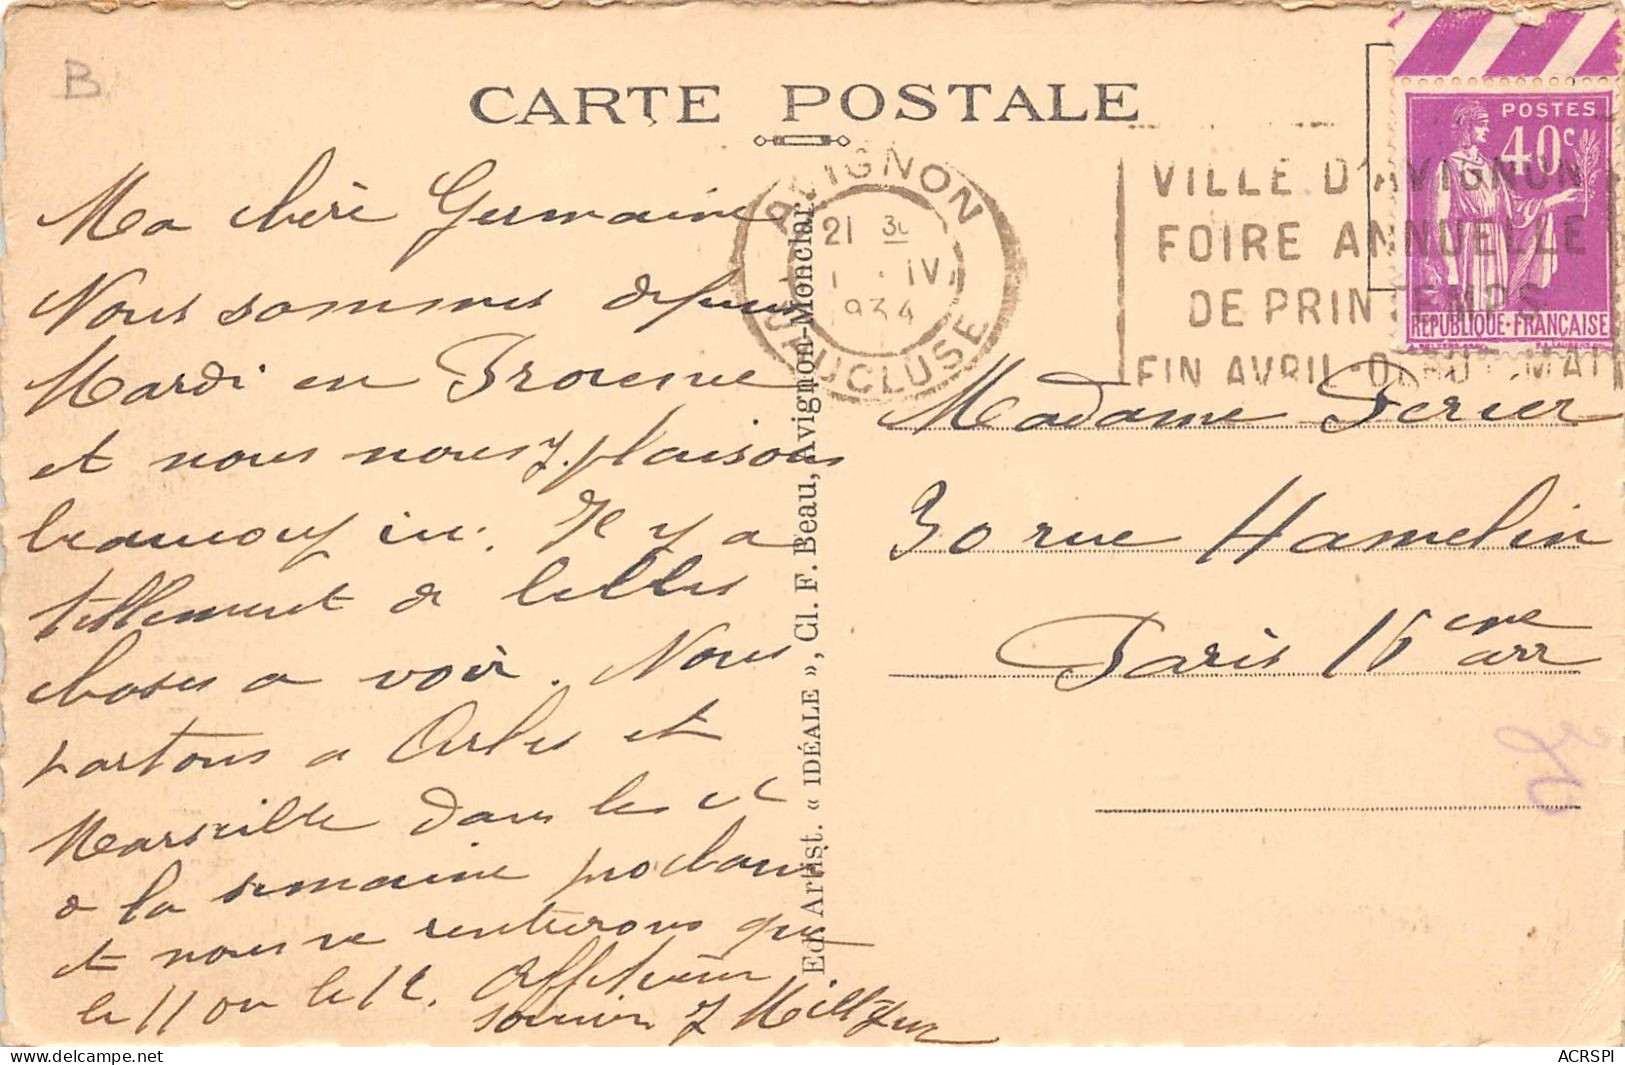 B.
CARTE POSTALE
AVIGNON
21 30
1 · IV
1934
VAUCLUSE
VILLE D'AVIGNON
FOIRE ANNUELLE
DE PRINTEMPS
FIN AVRIL-DEBUT MAI
POSTES
40c
REPUBLIQUE·FRANÇAISE
Ma chère Germaine
Nous sommes depuis
Mardi en Provence
et nous nous y plaisons
beaucoup ici. Il y a
tellement de belles
choses a voir. Nous
partons a Arles et
Marseille dans le
a la semaine prochaine
et nous ne rentrerons que
le 11 ou le 12. Affectueux
souvenir
Madame Perier
30 rue Hamelin
Paris 16 eme arr
Ed. Artist. « IDÉALE », Cl. F. Beau, Avignon-Monclar.
ACRSPI